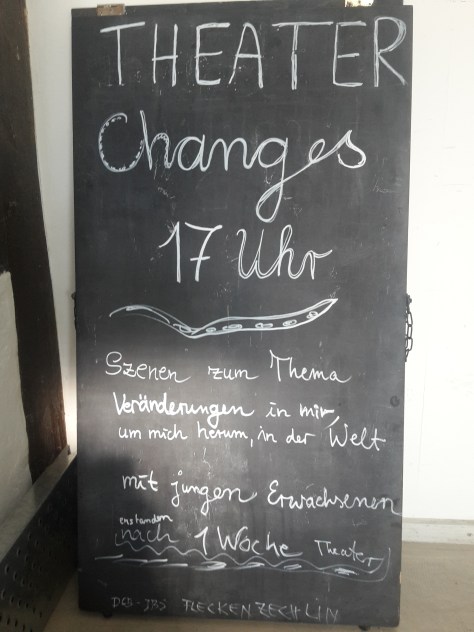 THEATER
Changes
17 Uhr
Szenen zum Thema
Veränderungen in mir,
um mich herum, in der Welt
mit jungen Erwachsenen
entstanden
nach 1 Woche Theater
FLECKENZECHLIN